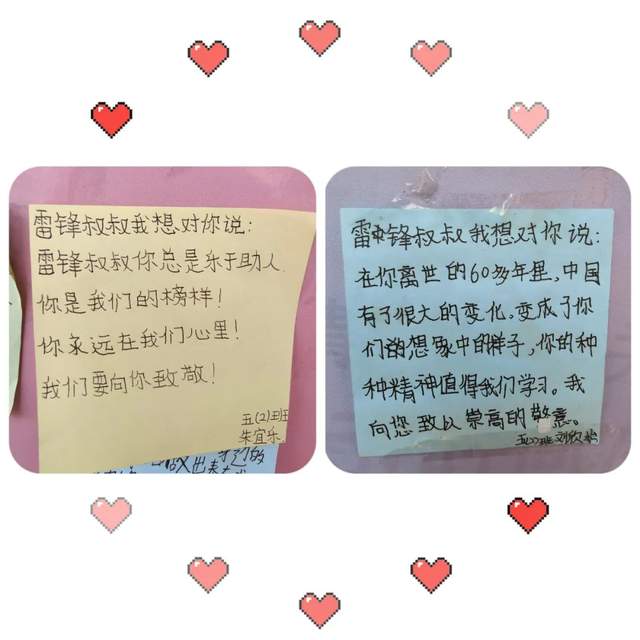 雷锋叔叔我想对你说:
雷锋叔叔你总是乐于助人.
你是我们的榜样!
你永远在我们心里!
我们要向你致敬!
五(2)班
朱宜乐
雷锋叔叔我想对你说:
在你离世的60多年里,中国
有了很大的变化,变成了你
们的想象中的样子,你的种
种精神值得我们学习。我
向您致以崇高的敬意。
班刘欣